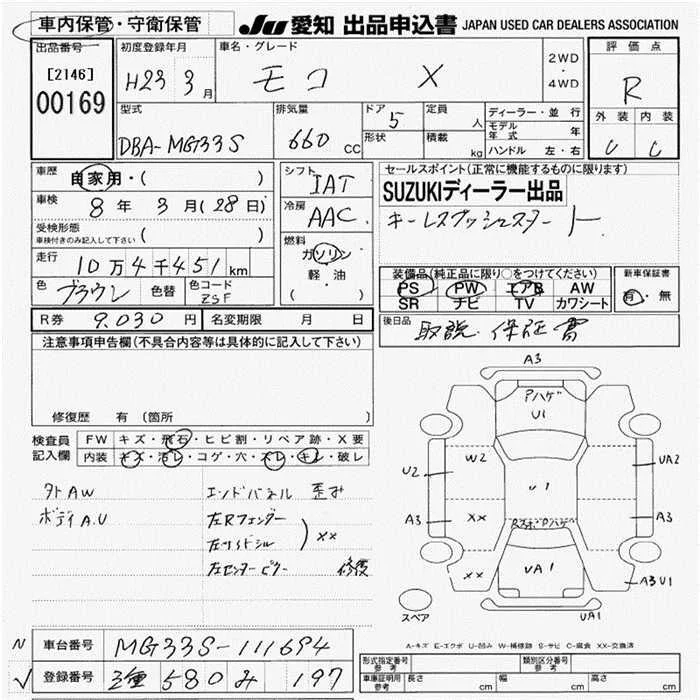 車内保管・守衛保管
JU 愛知 出品申込書 JAPAN USED CAR DEALERS ASSOCIATION
出品番号 初度登録年月 車名・グレード 評価点
[2146] H23 3月 モコ X 2WD・4WD R
00169
型式 排気量 ドア 5 定員 人 ディーラー・並行 外装 内装
DBA-MG33S 660 CC 形状 積載 kg モデル年式 年 C C
ハンドル 左・右
車歴 自家用・( ) シフト IAT セールスポイント(正常に機能するものに限ります)
車検 8年 3月(28日) 冷房 AAC SUZUKIディーラー出品
受検形態 車検付きのみ記入して下さい ( ) キーレスプッシュスタート
走行 10万4千451km 燃料 ガソリン 軽・油 ( )
装備品(純正品に限り○をつけてください) 新車保証書
色 ブラウン 色替 色コード ZSF PS PW エアB AW 有・無
SR ナビ TV カワシート
R券 9,030円 名変期限 月 日 後日品 取説・保証書
注意事項申告欄(不具合内容等は具体的に記入して下さい)
修復歴 有(箇所
検査員記入欄 FW キズ・飛石・ヒビ割・リペア跡・X要
内装 キズ・汚レ・コゲ・穴・スレ・キレ・破レ
外AW エンドパネル 歪み
ボディA.U 左Rフェンダー
左サイドシル XX
左センターピラー 修復
A3
Pハゲ
U1
U2 W2 UA2
U1
A3 XX A3
XX UA1 A3U1
スペア UA1
A-キズ E-エクボ U-凹み W-補修跡 S-サビ C-腐食 XX-交換済
N 車台番号 MG33S-111694
√ 登録番号 三重 580 み 197
形式指定番号 参考 類別区分番号 参考
車庫証明用 参考 長さ cm 幅 cm 高さ cm